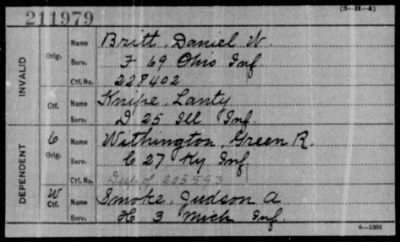 211979
(3-11-4)
INVALID
Orig.
Name Britt, Daniel W.
Serv. F 69 Ohio Inf
Ctf. No. 229402
Ctf.
Name Knipe, Lanty
Serv. D 25 Ill Inf
DEPENDENT
C
Orig.
Name Withington, Green R.
Serv. C 27 Ky Inf
Ctf. No. 203553
W
Ctf.
Name Smoke, Judson A
Serv. H 3 Mich Inf.